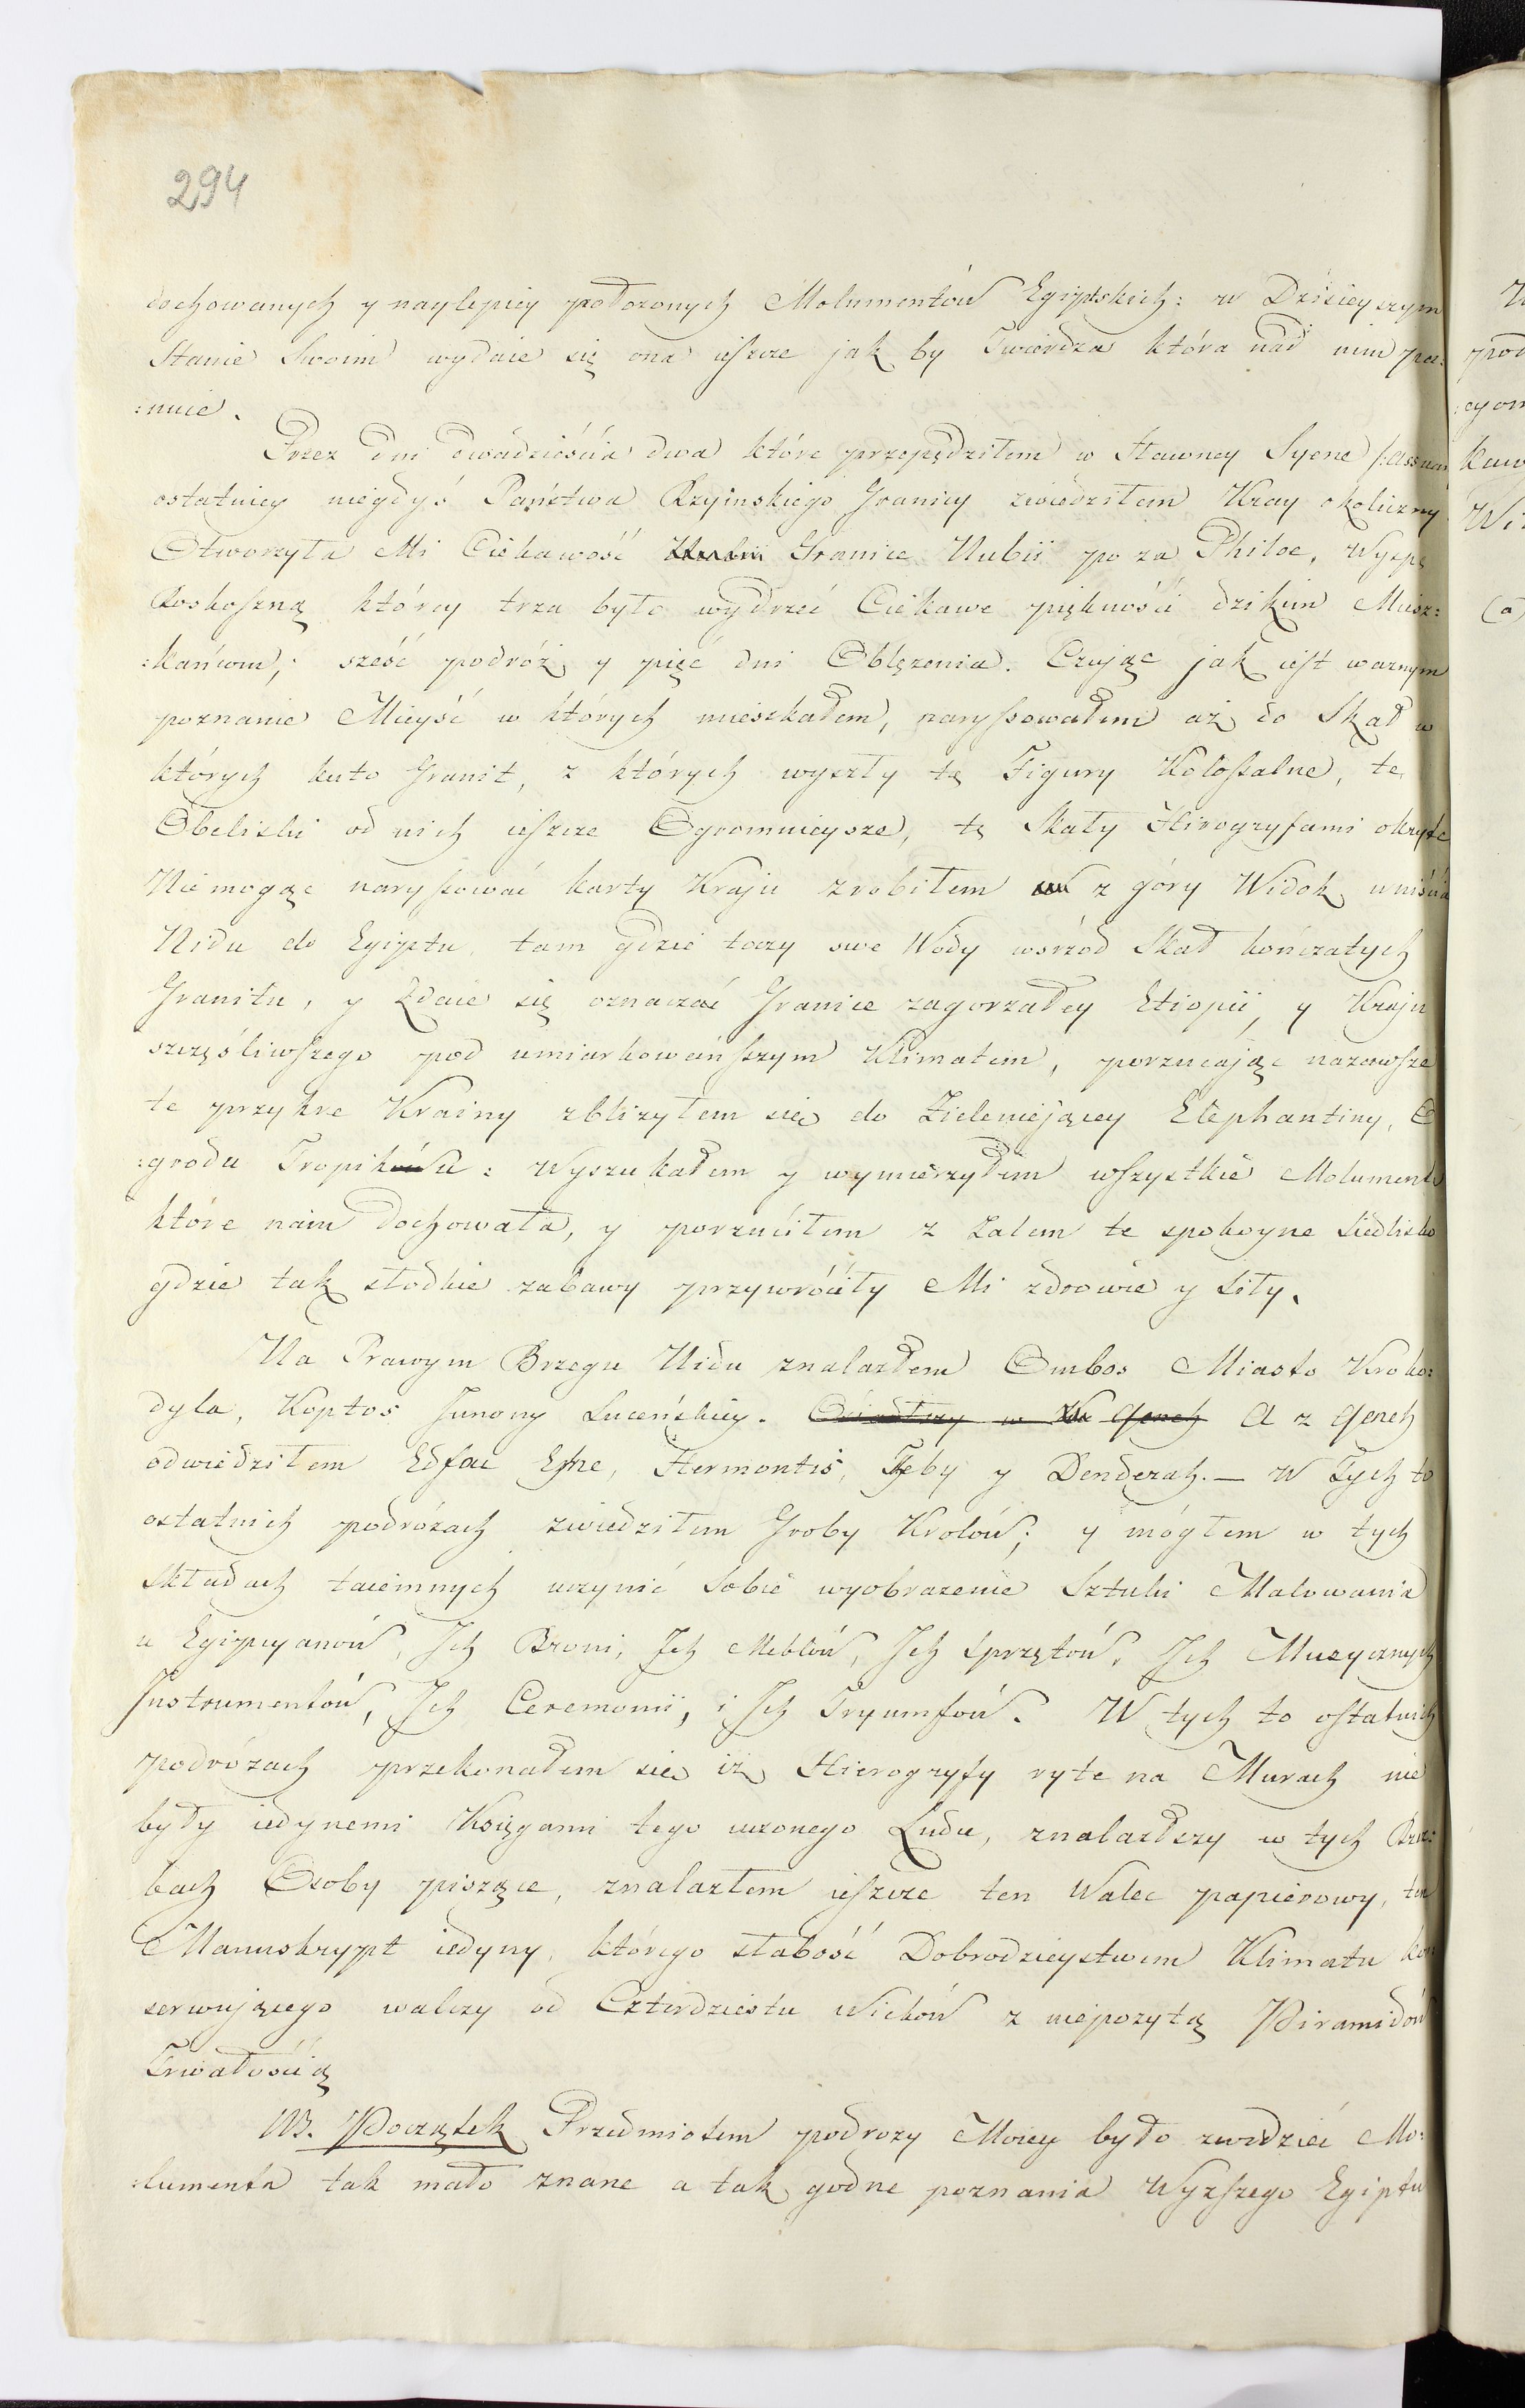 294
dochowanych y naylepiey położonych Molumentów Egiptskich: w Dzisieyszym
Stanie Swoim wydaie się ona ieszcze jak by Twierdza która nad nim pa:
:nuie.
Przez dni dwadzieścia dwa które przepędziłem w Sławney Syene /:Assuan
ostatniey niegdyś Państwa Rzyinskiego Granicy zwiedziłem Kray okoliczny
Otworzyła Mi Ciekawość Granice Nubii po za Philoe, Wyspę
Roskoszną którey trza było wydrzeć Ciekawe piękności dzikim Miesz:
:kańcom, sześć podróż y pięć dni Oblężenia. Czując jak iest ważnym
poznanie Mieysć w których mieszkałem, naryssowałem aż do Skał w
których kuto Granit, z których wyszły tę Figury Kolossalne, te
Obeliski od nich ieszcze Ogromnieysze, tę Skały Hirogryfami okryte
Nie mogąc naryssować karty Kraju zrobiłem z góry Widok uniścia
Nidu do Egiptu, tam gdzie toczy swe Wody wsrzod Skał kończatych
Granitu, y Zdaie się oznaczać Granice zagorzałey Etiopii, y Kraju
szczęśliwszego pod umiarkowańszym Klimatem, porzucając nazawsze
te przykre Krainy zbliżyłem się do Zieleniejącey Elephantiny, O
:grodu Tropiku: Wyszukałem y wymierzyłem wszystkie Molumenta
które nam dochowała, y porzuciłem z Żalem te spokoyne Siedlisko
gdzie tak słodkie zabawy przywróciły Mi zdrowie y Siły.
Na Prawym Brzegu Nidu znalazłem Ombos Miasto Kroko:
dyla, Koptos Junony Luceńskiey. A z Qeneh
odwiedziłem Edfac Esne, Hermontis, Teby y Denderah. — W Tych to
ostatnich podróżach zwiedziłem Groby Krolów; y mógłem w tych
składach taiemnych uczynić Sobie wyobrażenie Sztuki Malowania
u Egipcyanow, Ich Broni, Ich Meblów, Ich Sprzętow, Ich Muzycznych
Instrumentow, Ich Ceremonii, i Ich Tryumfow. W tych to ostatnich
podróżach przekonałem się iż Hierogryfy ryte na Murach nie
były iedynemi Księgami tego uczonego Ludu, znalazłszy w tych Rzez:
bach Osoby piszące, znalazłem ieszcze ten Walec papierowy, ten
Manuskrypt iedyny, którego słabość Dobrodzieystwem Klimatu kon
serwuiącego walczy od Czterdziestu Wieków z niepożytą Piramidow
Trwałością
NB. Początek Przedmiotem podrozy Moiey było zwidzieć Mo:
:lumenta tak mało znane a tak godne poznania Wyższego Egiptu